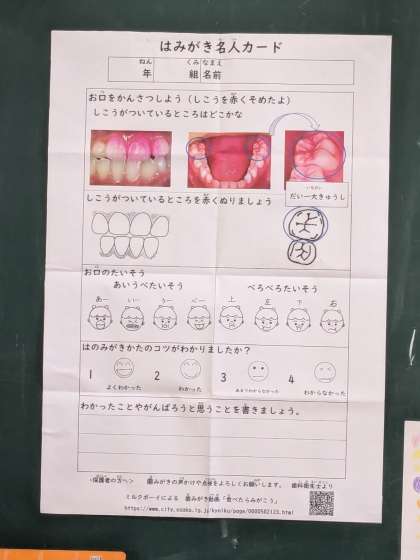 はみがき名人カード
ねん くみ なまえ
年 組 名前
お口をかんさつしよう（しこうを赤くそめたよ）
しこうがついているところはどこかな
だい一大きゅうし
しこうがついているところを赤くぬりましょう
お口のたいそう
あいうべたいそう
べろべろたいそう
あー いー うー べー 上 左 下 右
はのみがきかたのコツがわかりましたか？
1 2 3 4
よくわかった わかった あまりわからなかった わからなかった
わかったことやがんばろうと思うことを書きましょう。
<保護者の方へ> 歯みがきの声かけや点検をよろしくお願いします。 歯科衛生士より
ミルクボーイによる 歯みがき動画「食べたらみがこう」